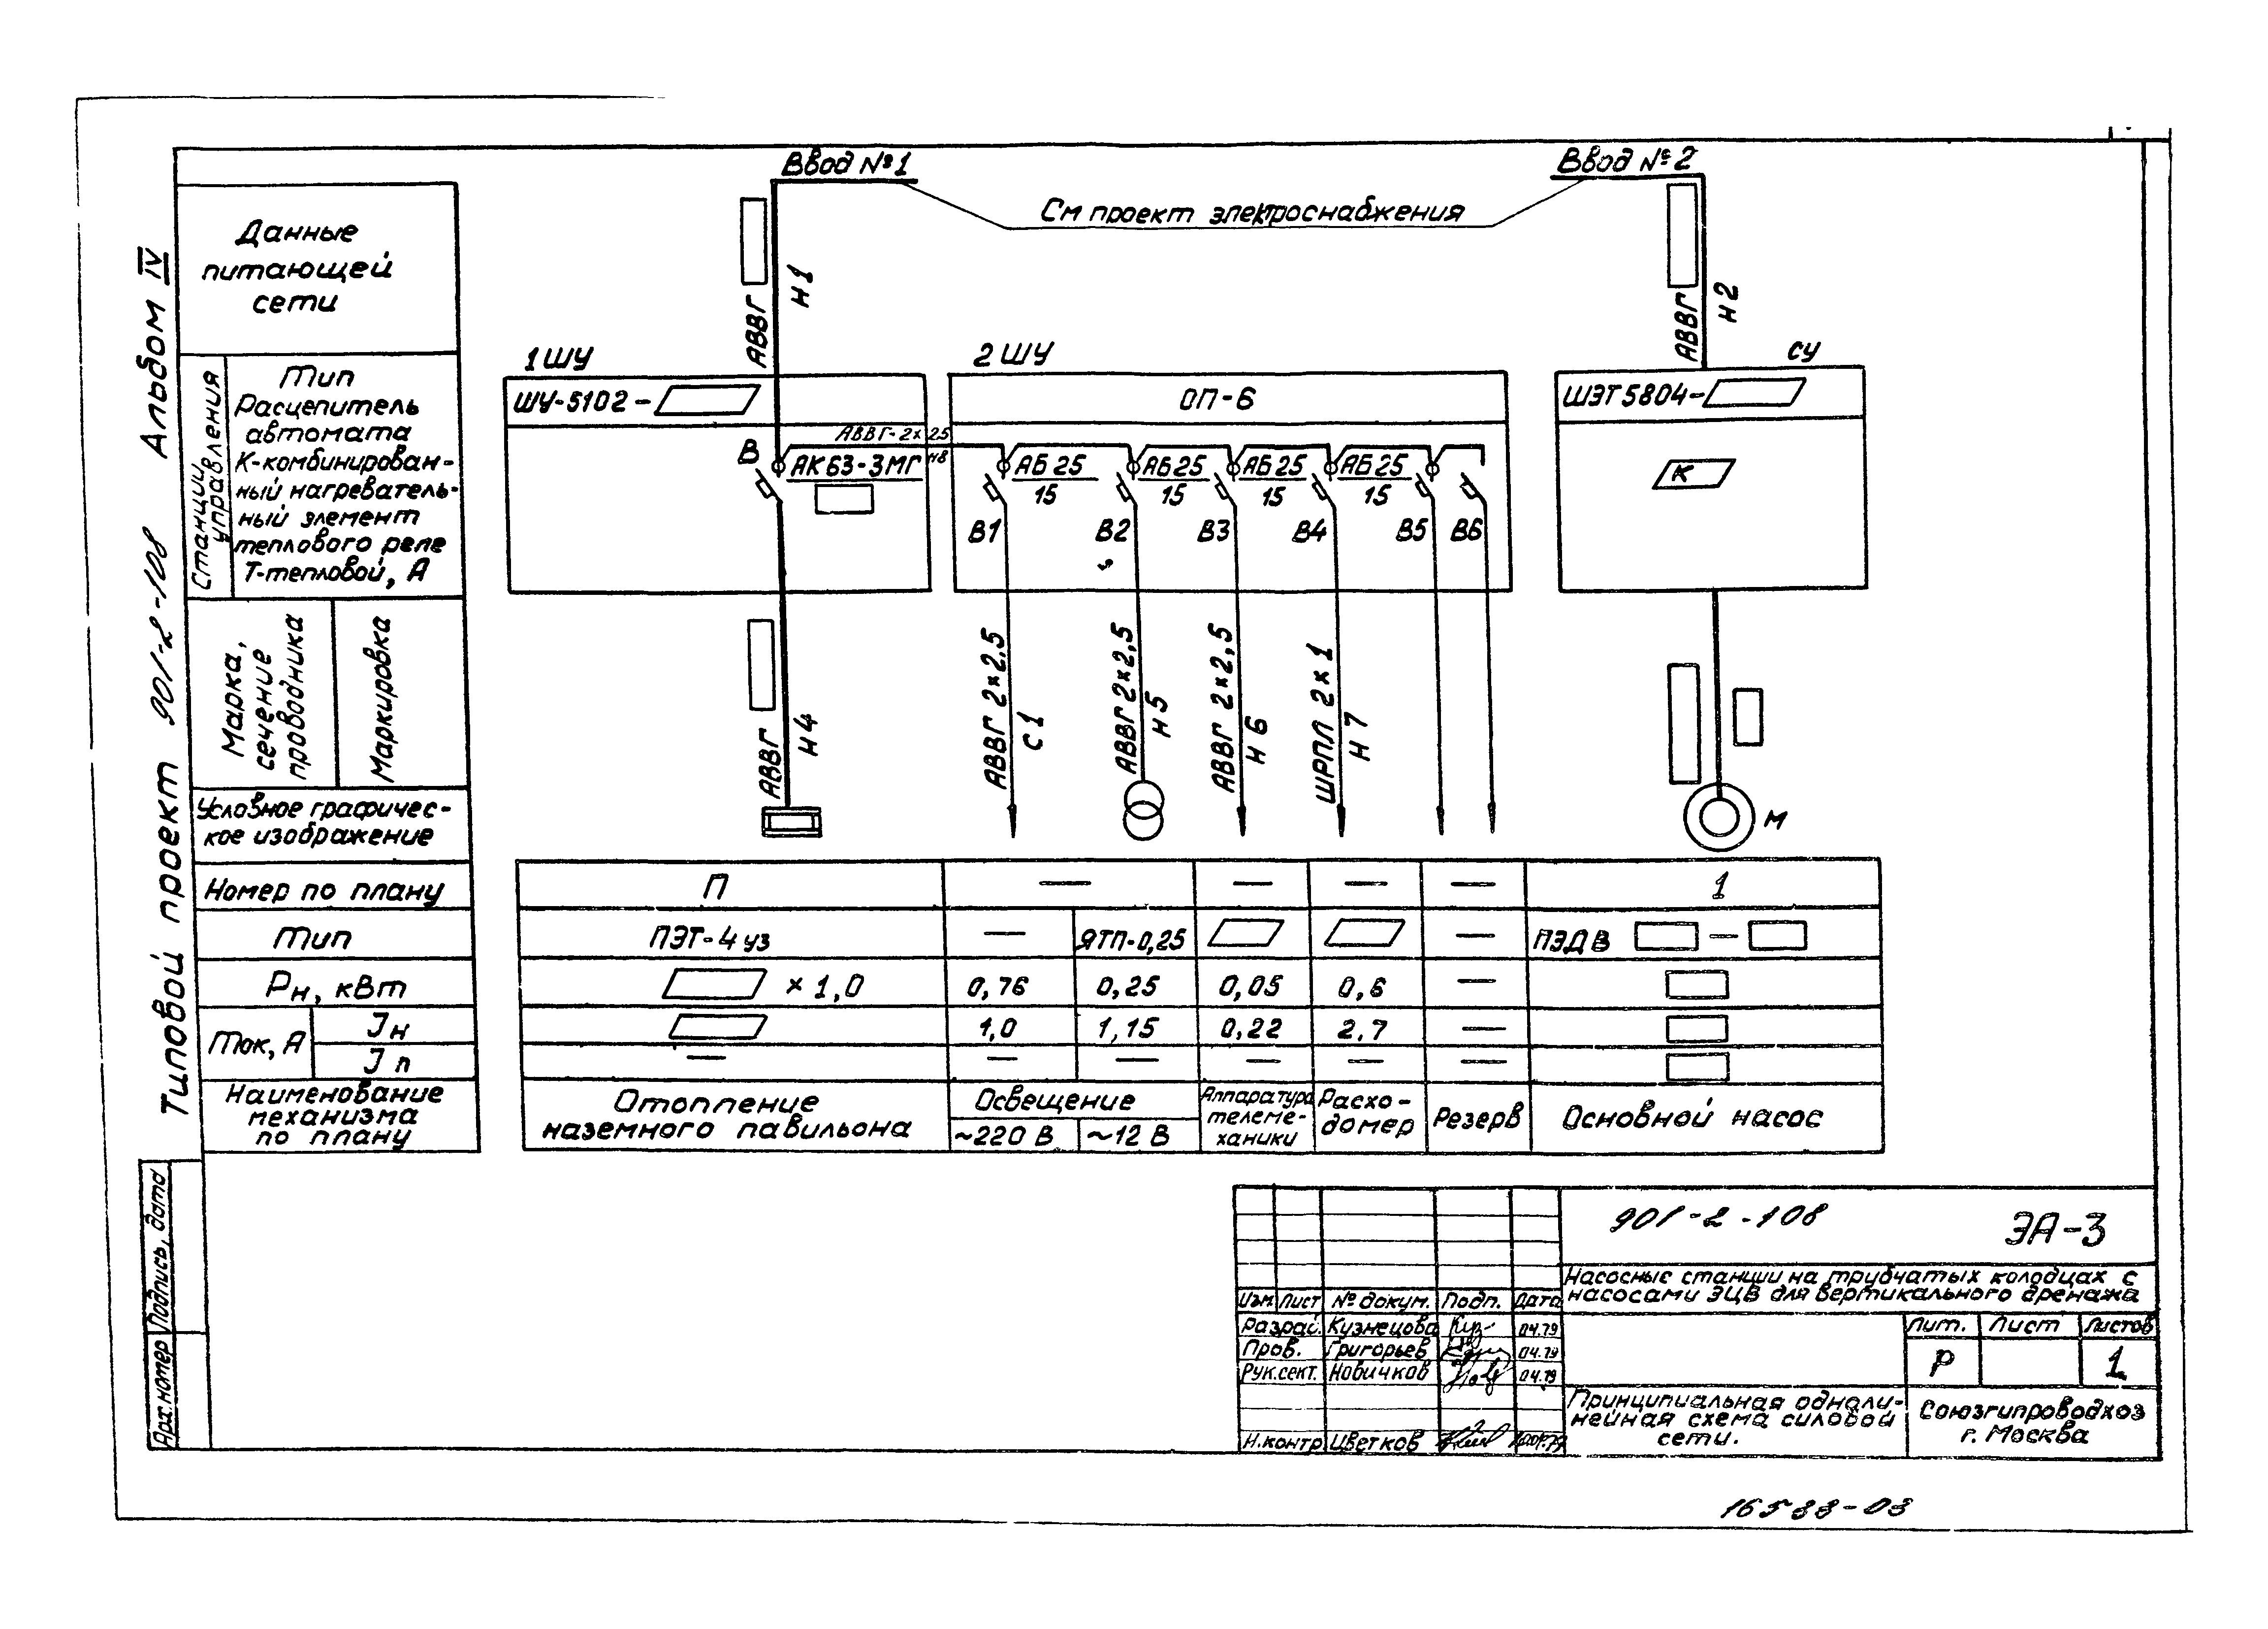 Ввод №1
Ввод №2
См проект электроснабжения
Данные
питающей
сети
АВВГ
Н1
АВВГ
Н2
Станции
управления
Тип
Расцепитель
автомата
К-комбинирован-
ный нагреватель-
ный элемент
теплового реле
Т-тепловой, А
1ШУ
ШУ-5102-
В
АК63-3МГ
АВВГ-2х2,5
Н8
2ШУ
ОП-6
АБ25
15
АБ25
15
АБ25
15
АБ25
15
В1
В2
В3
В4
В5
В6
СУ
ШЭТ5804-
К
Марка,
сечение
проводника
Маркировка
АВВГ
Н4
АВВГ 2×2,5
С1
АВВГ 2×2,5
Н5
АВВГ 2×2,5
Н6
ШРПЛ 2×1
Н7
Условное графичес-
кое изображение
М
Номер по плану
П — — — — 1
Тип
ПЭТ-4 уз — ЯТП-0,25 — ПЭДВ —
Рн, кВт
× 1,0 0,76 0,25 0,05 0,6 —
Ток, А
Jн
1,0 1,15 0,22 2,7 —
Jп
— — — — — —
Наименование
механизма
по плану
Отопление
наземного павильона
Освещение
~220 В
~12 В
Аппаратура
телеме-
ханики
Расхо-
домер
Резерв
Основной насос
Типовой проект 901-2-108 Альбом IV
Подпись, дата
Арх. номер
901-2-108
ЭА-3
Насосные станции на трубчатых колодцах с
насосами ЭЦВ для вертикального дренажа
Изм. Лист № докум. Подп. Дата
Разраб. Кузнецова Куз- 04.79
Пров. Григорьев 04.79
Рук.сект. Новичков 04.79
Н.контр. Цветков
Лит. Лист Листов
Р 1
Принципиальная однолИ-
нейная схема силовой
сети.
Союзгипроводхоз
г. Москва
16588-03